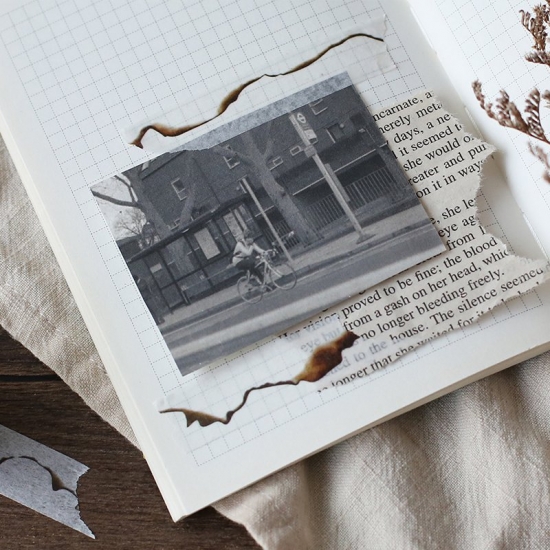 ncarnate, a
merely meta
days, a ne
it seemed t
she would o
eater and pu
on it in way
, she le
eye ag
from
proved to be fine; the blood
from a gash on her head, whic
no longer bleeding freely.
to the house. The silence seemed
longer that she waited for it